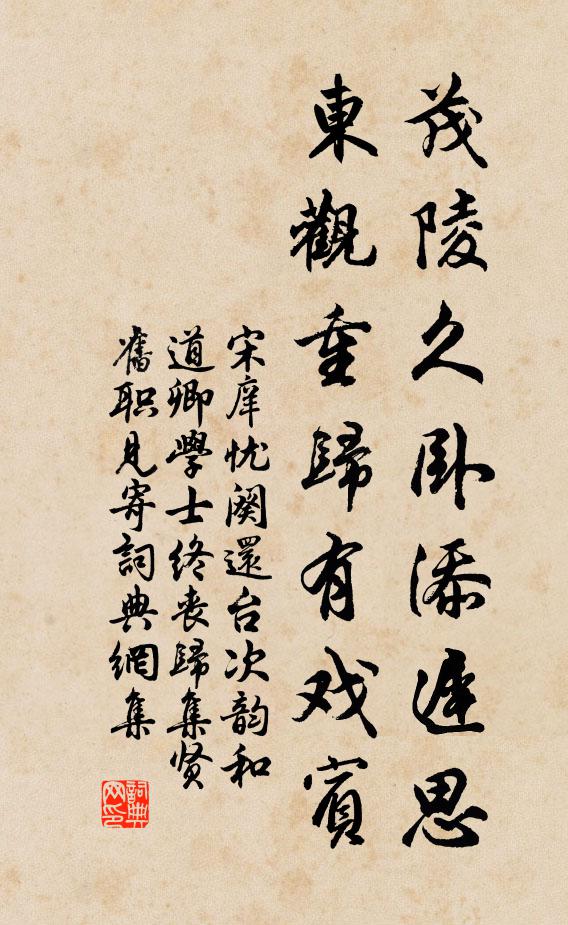 茂陵久卧添遲思
東觀重歸有戏賓
宋庠忧阕還台次韵和
道卿學士终丧歸集贤
舊职見寄詞典網集
詞典
网印